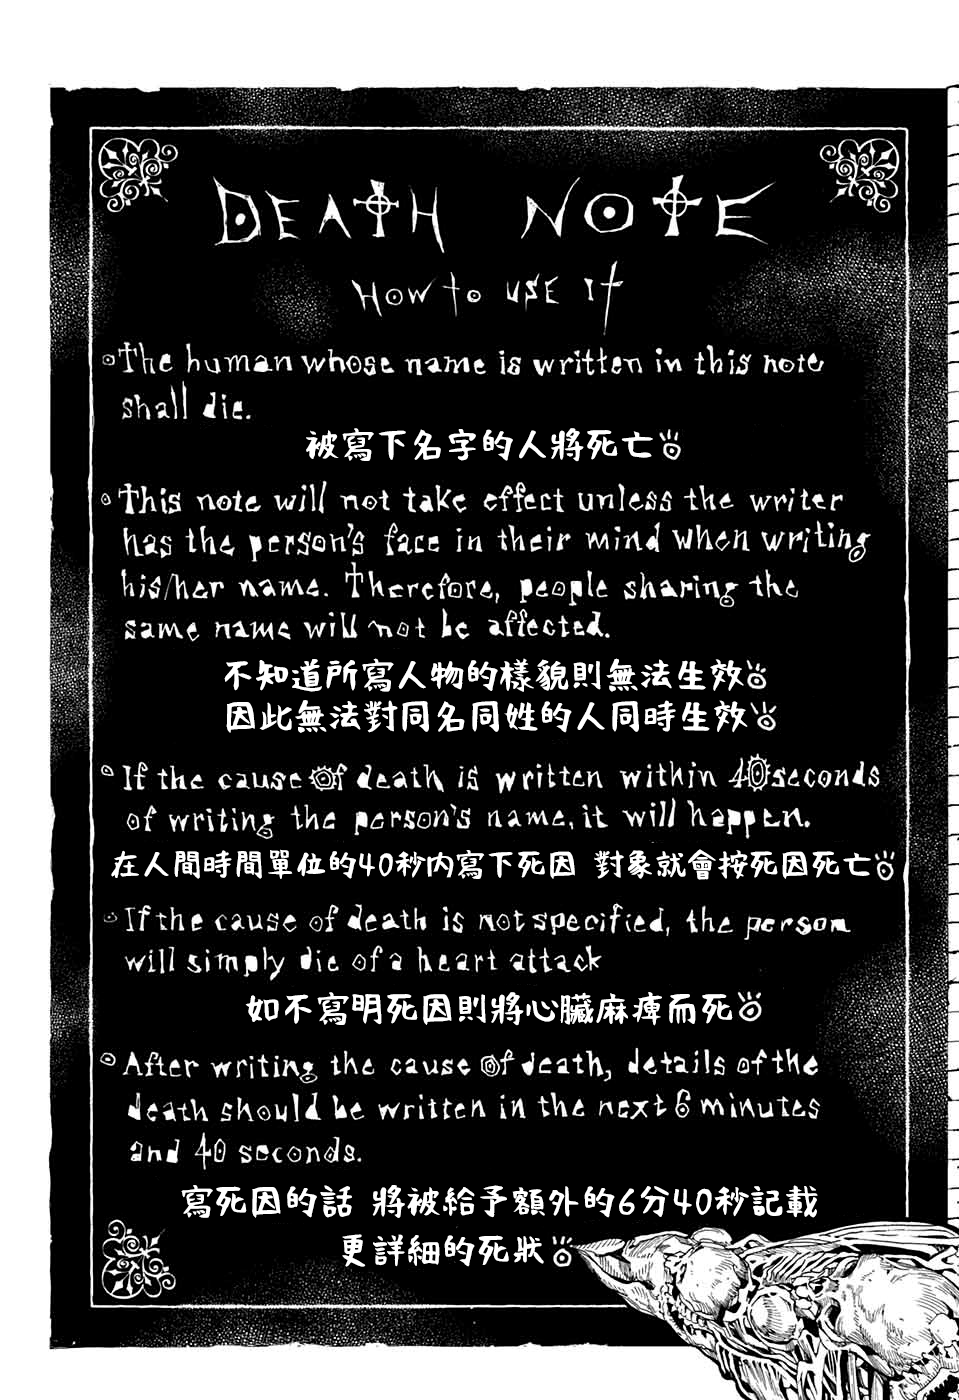 DEATH NOTE
HOW to USE It
The human whose name is written in this note
shall die.
被寫下名字的人將死亡
This note will not take effect unless the writer
has the person's face in their mind when writing
his/her name. Therefore, people sharing the
same name will not be affected.
不知道所寫人物的樣貌則無法生效
因此無法對同名同姓的人同時生效
If the cause of death is written within 40 seconds
of writing the person's name, it will happen.
在人間時間單位的40秒內寫下死因 對象就會按死因死亡
If the cause of death is not specified, the person
will simply die of a heart attack
如不寫明死因則將心臟麻痺而死
After writing the cause of death, details of the
death should be written in the next 6 minutes
and 40 seconds.
寫死因的話 將被給予額外的6分40秒記載
更詳細的死狀